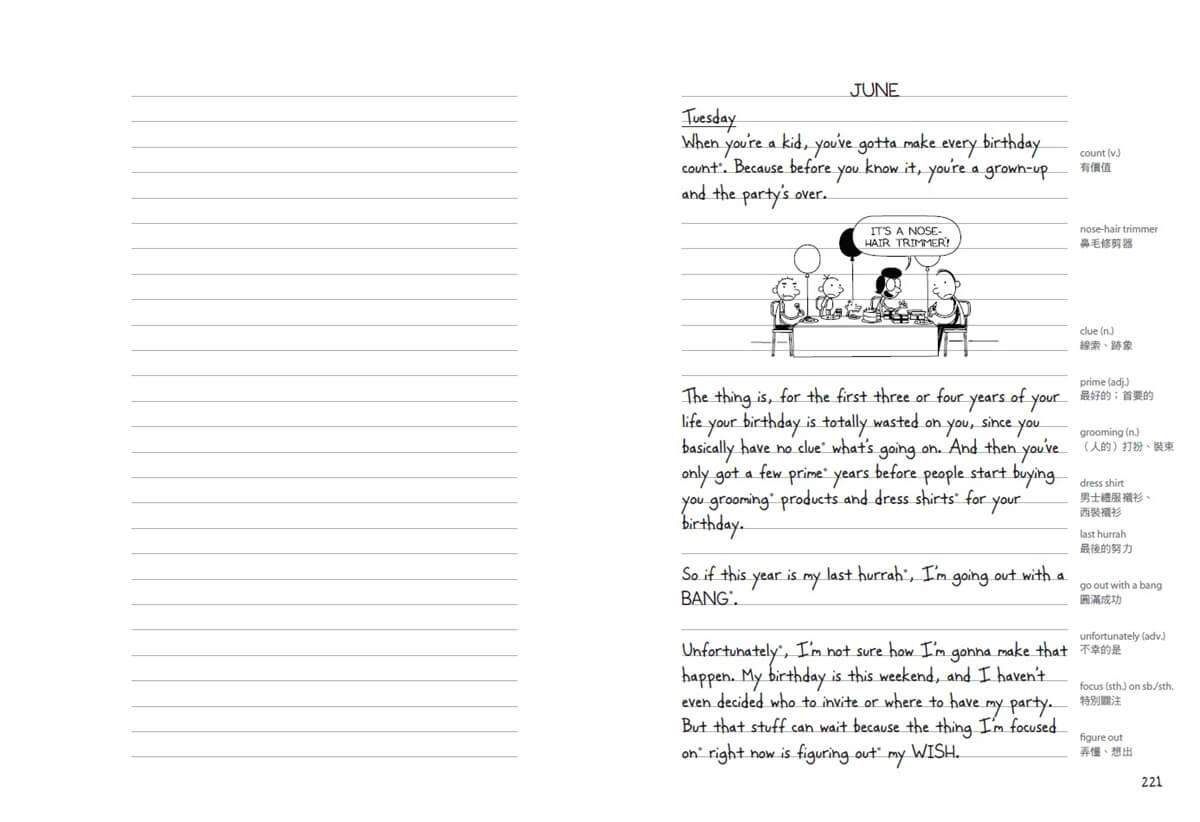 JUNE
Tuesday
When you're a kid, you've gotta make every birthday
count*. Because before you know it, you're a grown-up
and the party's over.
IT'S A NOSE-
HAIR TRIMMER!
The thing is, for the first three or four years of your
life your birthday is totally wasted on you, since you
basically have no clue* what's going on. And then you've
only got a few prime* years before people start buying
you grooming* products and dress shirts* for your
birthday.
So if this year is my last hurrah*, I'm going out with a
BANG*.
Unfortunately*, I'm not sure how I'm gonna make that
happen. My birthday is this weekend, and I haven't
even decided who to invite or where to have my party.
But that stuff can wait because the thing I'm focused
on* right now is figuring out* my WISH.
count (v.)
有價值
nose-hair trimmer
鼻毛修剪器
clue (n.)
線索、跡象
prime (adj.)
最好的；首要的
grooming (n.)
（人的）打扮、裝束
dress shirt
男士禮服襯衫、
西裝襯衫
last hurrah
最後的努力
go out with a bang
圓滿成功
unfortunately (adv.)
不幸的是
focus (sth.) on sb./sth.
特別關注
figure out
弄懂、想出
221